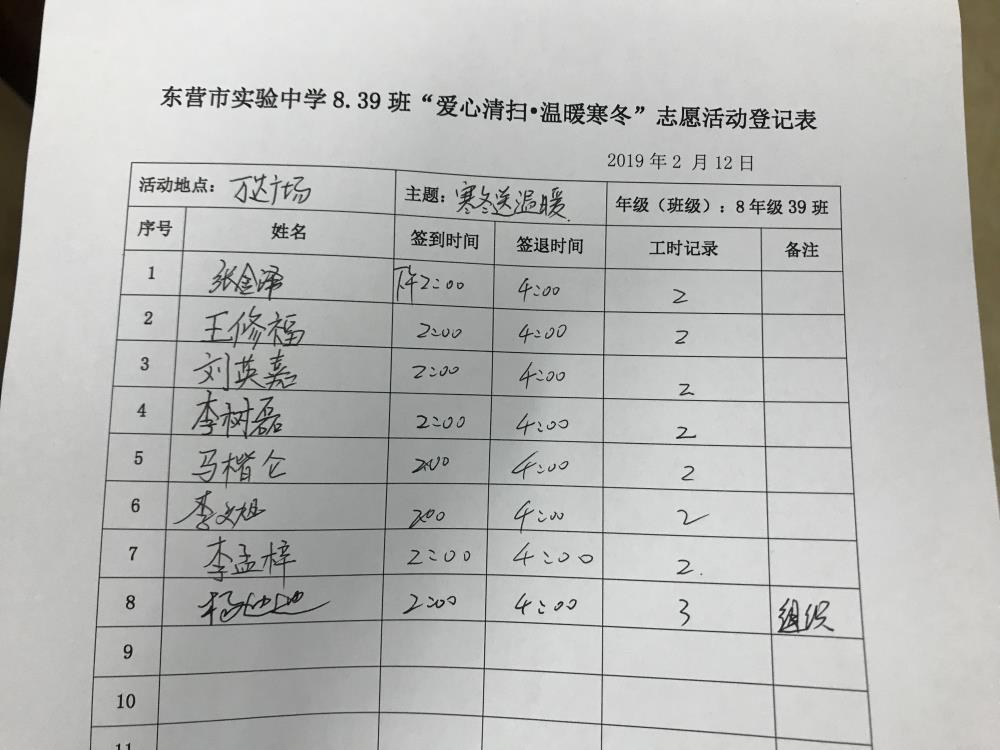 东营市实验中学8.39班“爱心清扫•温暖寒冬”志愿活动登记表
2019年2月12日
活动地点：万达广场 主题：寒冬送温暖. 年级（班级）：8年级39班
序号 姓名 签到时间 签退时间 工时记录 备注
1 张金泽 下午2:00 4:00 2
2 王修福 2:00 4:00 2
3 刘英嘉 2:00 4:00 2
4 李树磊 2:00 4:00 2
5 马楷仑 2:00 4:00 2
6 李文旭 200 4:00 2
7 李孟梓 2:00 4:00 2.
8 杨 2:00 4:00 3 组织
9
10
11